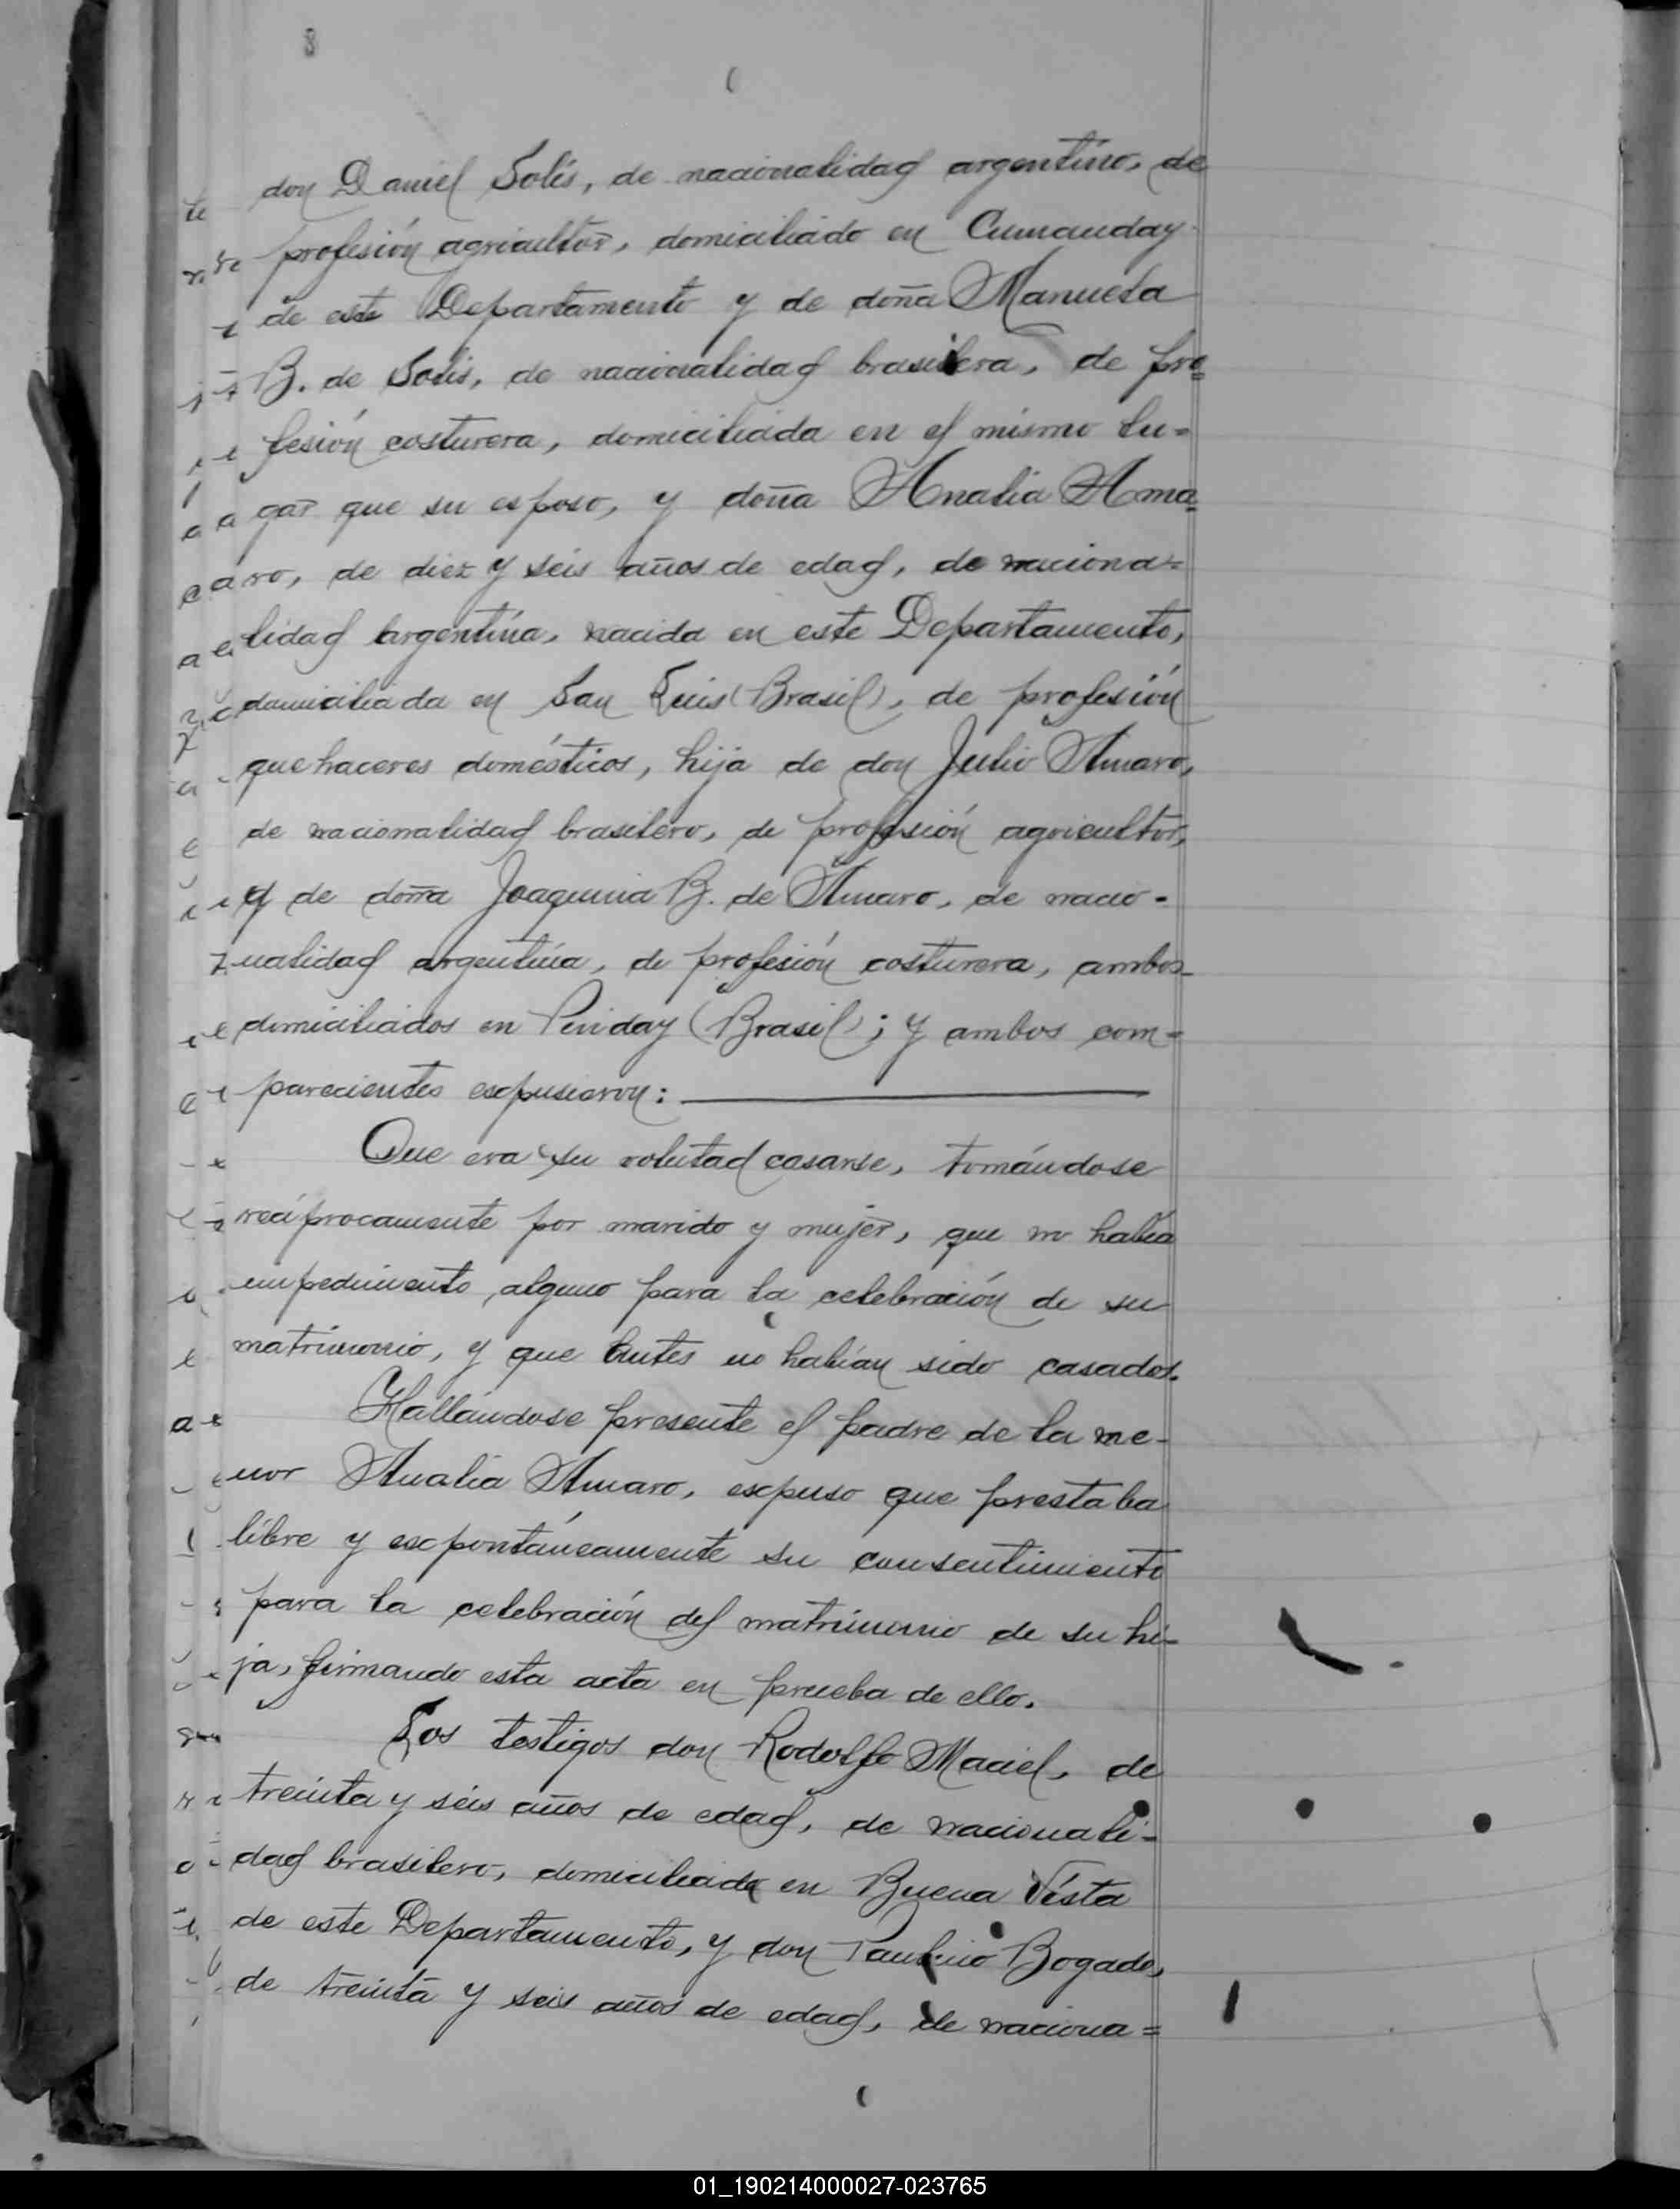 don Daniel Solis, de nacionalidad argentino, de
profesión agricultor, domiciliado en Cumanday
de este Departamento y de doña Manuela
B. de Solis, de nacionalidad brasilera, de pro=
fesión costurera, domiciliada en el mismo lu=
gar que su esposo, y doña Analia Ama=
ro, de diez y seis años de edad, de naciona=
lidad argentina, nacida en este Departamento,
domiciliada en San Luis (Brasil), de profesión
quehaceres domésticos, hija de don Julio Amaro,
de nacionalidad brasilero, de profesión agricultor,
y de doña Joaquina B. de Amaro, de nacio-
nalidad argentina, de profesión costurera, ambos
domiciliados en Piriday (Brasil); y ambos com=
parecientes espusieron:
Que era su volutad casarse, tomándose
recíprocamente por marido y mujer, que no había
impedimento alguno para la celebración de su
matrimonio, y que antes no habían sido casados.
Hallándose presente el padre de la me-
nor Analia Amaro, expuso que prestaba
libre y expontáneamente su consentimiento
para la celebración del matrimonio de su hi-
ja, firmando esta acta en prueba de ello.
Los testigos don Rodolfo Maciel, de
treinta y seis años de edad, de nacionali-
dad brasilero, domiciliado en Buena Vista
de este Departamento, y don Paulino Bogado,
de treinta y seis años de edad, de naciona=
01_190214000027-023765